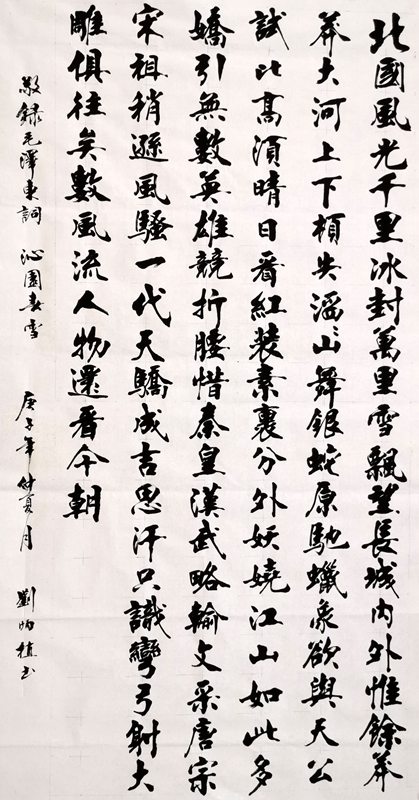 北國風光千里冰封萬里雪飄望長城內外惟餘莽
莽大河上下頓失滔〻山舞銀蛇原馳蠟象欲與天公
試比高須晴日看紅裝素裹分外妖嬈江山如此多
嬌引無數英雄競折腰惜秦皇漢武略輸文采唐宗
宋祖稍遜風騷一代天驕成吉思汗只識彎弓射大
雕俱往矣數風流人物還看今朝
敬錄毛澤東詞 沁園春雪 庚子年仲夏月 劉炳植书